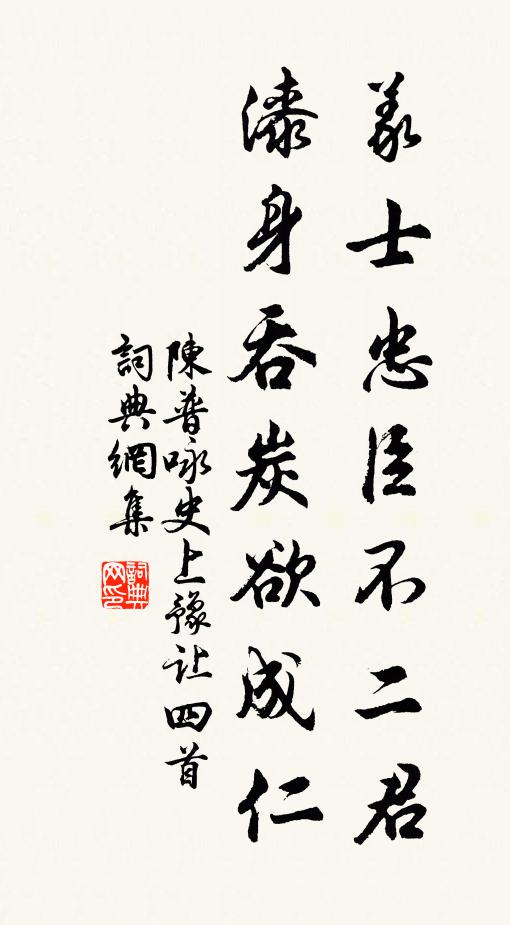 義士忠臣不二君
漆身吞炭欲成仁
陳普咏史上豫让四首
詞典網集
詞典
网印